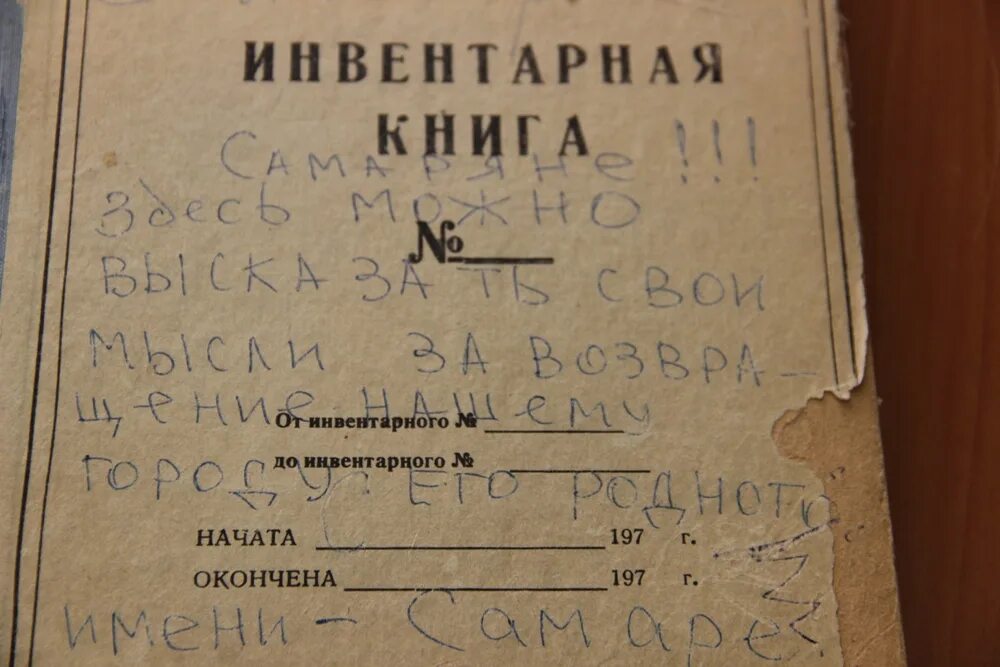 ИНВЕНТАРНАЯ
КНИГА
Самаряне !!!
здесь можно
№
высказать свои
мысли за возвра-
щение нашему
От инвентарного №
до инвентарного №
городу: его родного
НАЧАТА 197 г.
ОКОНЧЕНА 197 г.
имени - Самаре